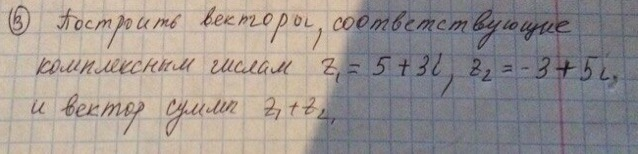 ③ Построить векторы, соответствующие
комплексным числам z₁ = 5 + 3i, z₂ = -3 + 5i,
и вектор суммы z₁ + z₂,